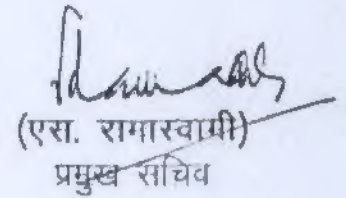 (एस. रामास्वामी)
प्रमुख सचिव